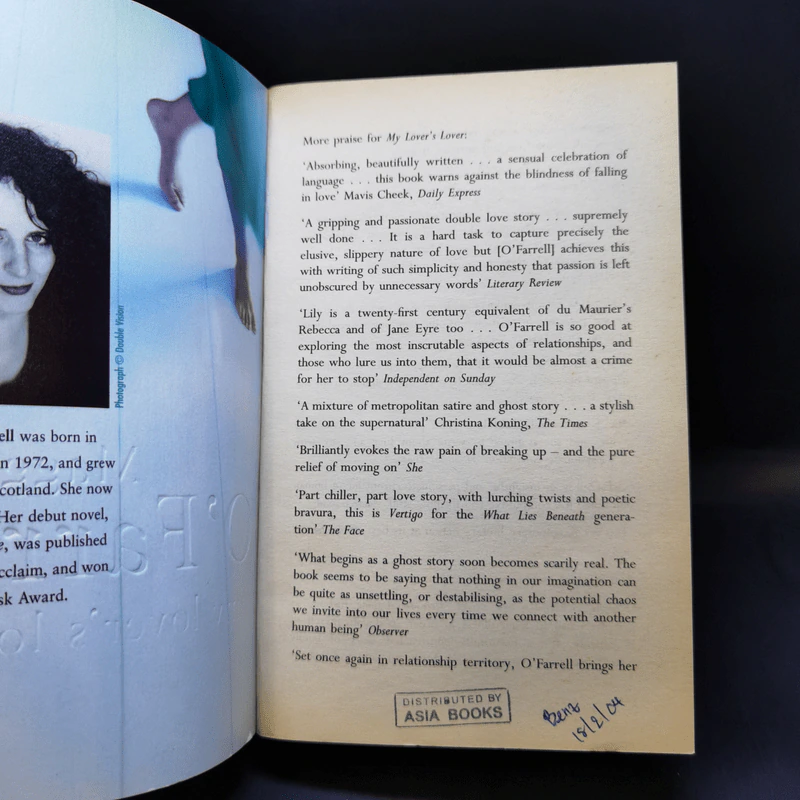 Photograph © Double Vision
ell was born in
n 1972, and grew
cotland. She now
Her debut novel,
e, was published
cclaim, and won
sk Award.
More praise for My Lover's Lover:
'Absorbing, beautifully written . . . a sensual celebration of
language . . . this book warns against the blindness of falling
in love' Mavis Cheek, Daily Express
'A gripping and passionate double love story . . . supremely
well done . . . It is a hard task to capture precisely the
elusive, slippery nature of love but [O'Farrell] achieves this
with writing of such simplicity and honesty that passion is left
unobscured by unnecessary words' Literary Review
'Lily is a twenty-first century equivalent of du Maurier's
Rebecca and of Jane Eyre too . . . O'Farrell is so good at
exploring the most inscrutable aspects of relationships, and
those who lure us into them, that it would be almost a crime
for her to stop' Independent on Sunday
'A mixture of metropolitan satire and ghost story . . . a stylish
take on the supernatural' Christina Koning, The Times
'Brilliantly evokes the raw pain of breaking up – and the pure
relief of moving on' She
'Part chiller, part love story, with lurching twists and poetic
bravura, this is Vertigo for the What Lies Beneath genera-
tion' The Face
'What begins as a ghost story soon becomes scarily real. The
book seems to be saying that nothing in our imagination can
be quite as unsettling, or destabilising, as the potential chaos
we invite into our lives every time we connect with another
human being' Observer
'Set once again in relationship territory, O'Farrell brings her
DISTRIBUTED BY
ASIA BOOKS
Benz
18/2/04